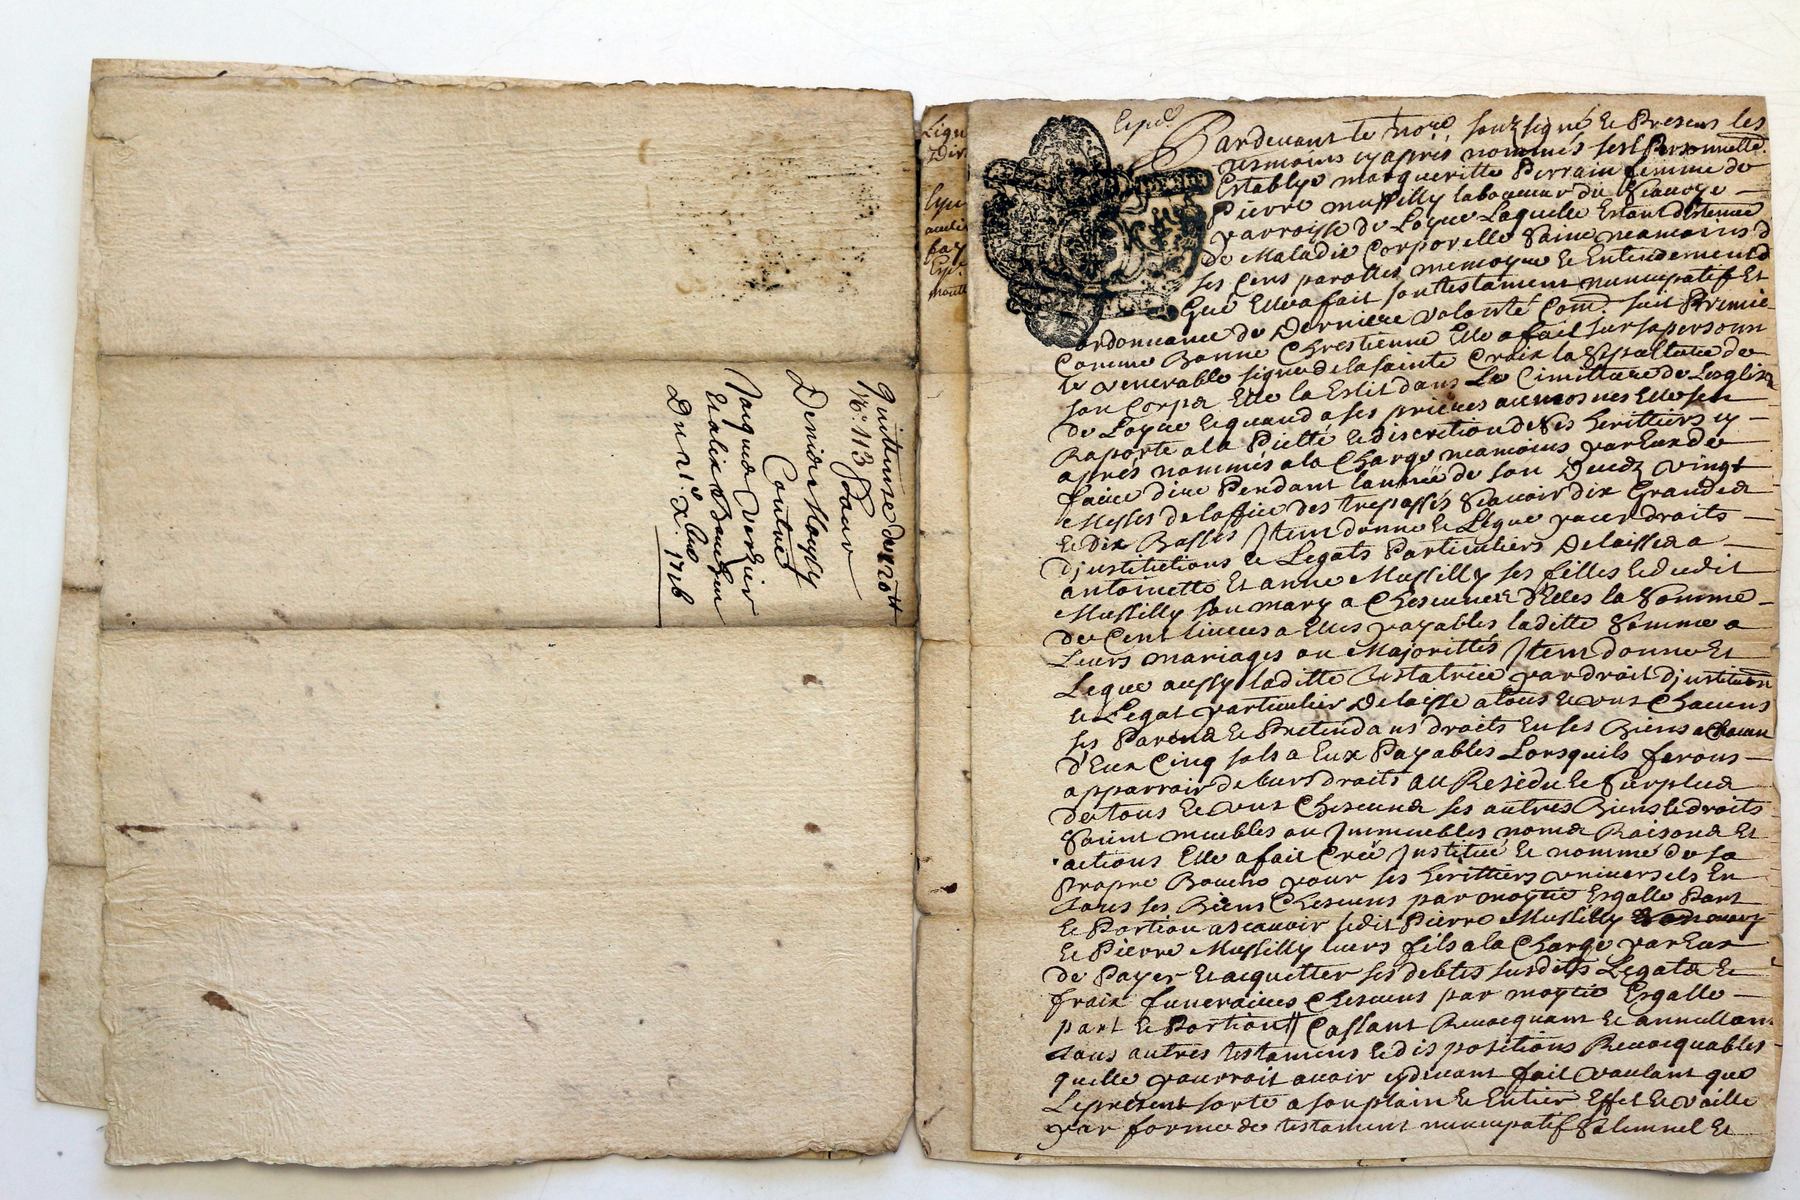 quittense de 120ᵗᵗ
N°: 113 Pour
Denis
Contre
Jaque Verchier
Du 21ᵉ 1716
Expé.
Pardevant le Nore. soubsigné & Presens les
tesmoins cy apres nommés sest Personnelle.
Establye margueritte Perrain femme de
Pierre Mussilly laboureur du —
parroisse de Loyse Laquelle Estant destenue
de Maladie Corporelle Saine neamoins d
ses Cens parolles memoyre & Entendement d
Gré Elle a fait son testament nuncupatif Et
ordonnance de Derniere volonté Com. suit Premie
Comme Bonne Chrestienne Elle a fait sur sa personn
le venerable signe de la sainte Croix la Sepulture de
son Corps Elle la Eslit dans Le Cimittiere de Leglise
de Loyse & quand a ses prieres aumosnes Elle sen
Raporte a la Pietté & discretion de ses herittiers cy —
apres nommés a la Charge neamoins par Eux de
faire dire Pendant lannée de son Deceds vingt
Messes de loffice des trepassés Scavoir dix Grandes
& dix Basses Item donne & Legue par droits —
dinstitutions & Legats Particuliers Delaisse a —
antoinette Et anne Mussilly ses filles & dudit
Mussilly son mary a Chescune d'Elles la Somme —
de Cent livres a Elles payables laditte Somme a
Leurs mariages ou Majorittés Item donne Et
Legue aussy laditte Testatrice par droit dinstitution
& Legat particulier Delaisse a tous & uns Chacuns
ses Parens & Pretendans droits En ses Biens a Chacun
d'Eux Cinq sols a Eux Payables Lorsquils ferons —
apparroir de leurs droits au Residu & Surplus
de tous & uns Chescuns ses autres Biens & droits
Soint meubles ou Immeubles noms Raisons Et
actions Elle a fait Creé Institué & nommé de sa
Propre Bouche pour ses herittiers universels En
tous ses Biens Chescuns par moytié Esgalle Part
& Portion ascavoir ledit Pierre Mussilly son mary
& Pierre Mussilly leurs fils a la Charge par Eux
de Payer & acquitter ses debtes susdits Legats &
fraix funeraires Chescuns par moytié Esgalle —
part & Portion // Cassant Revocquant & annullant
tous autres testamens & dispositions Revocquables
quelle pourroit avoir cydevant fait voulant que
Le present sorte a son plain & Entier Effet & vaille
par forme de testament nuncupatif Solemnel &